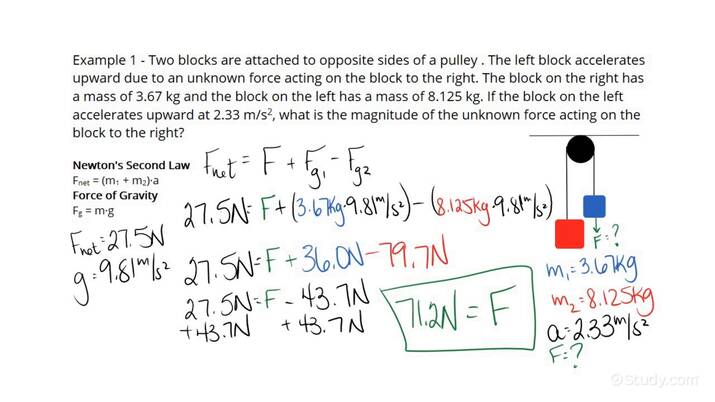 Example 1 - Two blocks are attached to opposite sides of a pulley . The left block accelerates
upward due to an unknown force acting on the block to the right. The block on the right has
a mass of 3.67 kg and the block on the left has a mass of 8.125 kg. If the block on the left
accelerates upward at 2.33 m/s², what is the magnitude of the unknown force acting on the
block to the right?
Newton's Second Law
Fnet = (m₁ + m₂)·a
Force of Gravity
Fg = m·g
Fnet = 27.5N
g = 9.81 m/s²
Fnet = F + Fg₁ - Fg₂
27.5N = F + (3.67kg·9.81m/s²) - (8.125kg·9.81m/s²)
27.5N = F + 36.0N - 79.7N
27.5N = F - 43.7N
+43.7N + 43.7N
71.2N = F
F = ?
m₁ = 3.67kg
m₂ = 8.125kg
a = 2.33 m/s²
F = ?
©Study.com